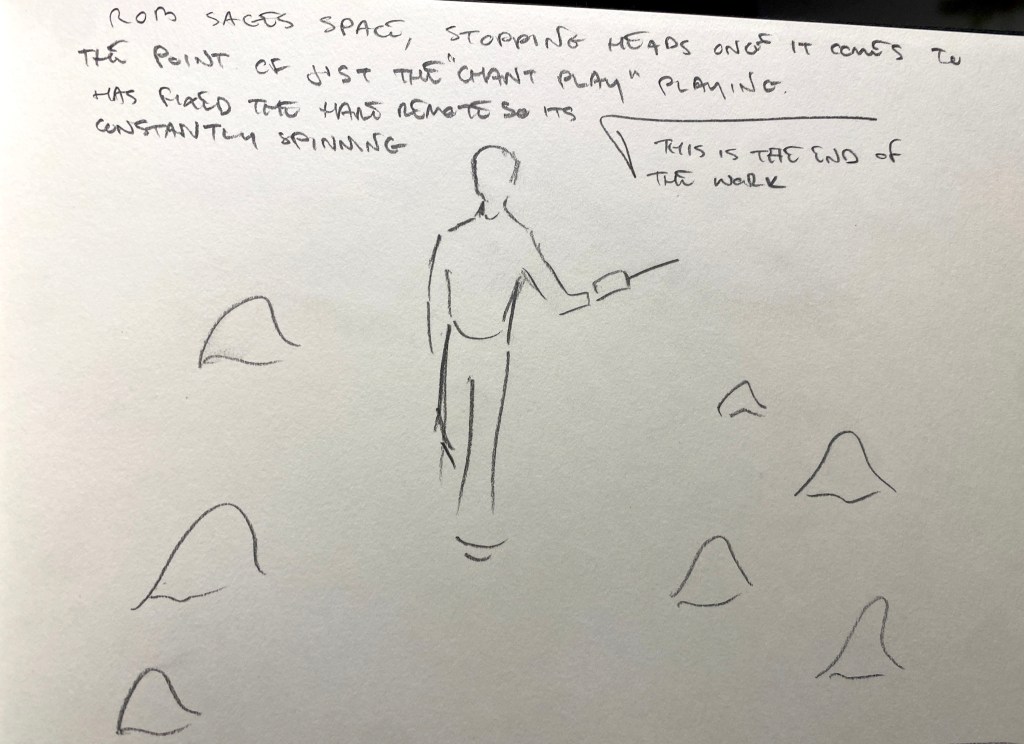 ROB SAGES SPACE, STOPPING HEADS ONCE IT COMES TO
THE POINT OF JIST THE "CHANT PLAY" PLAYING.
HAS FIXED THE HARE REMOTE SO ITS
CONSTANTLY SPINNING
THIS IS THE END OF
THE WORK